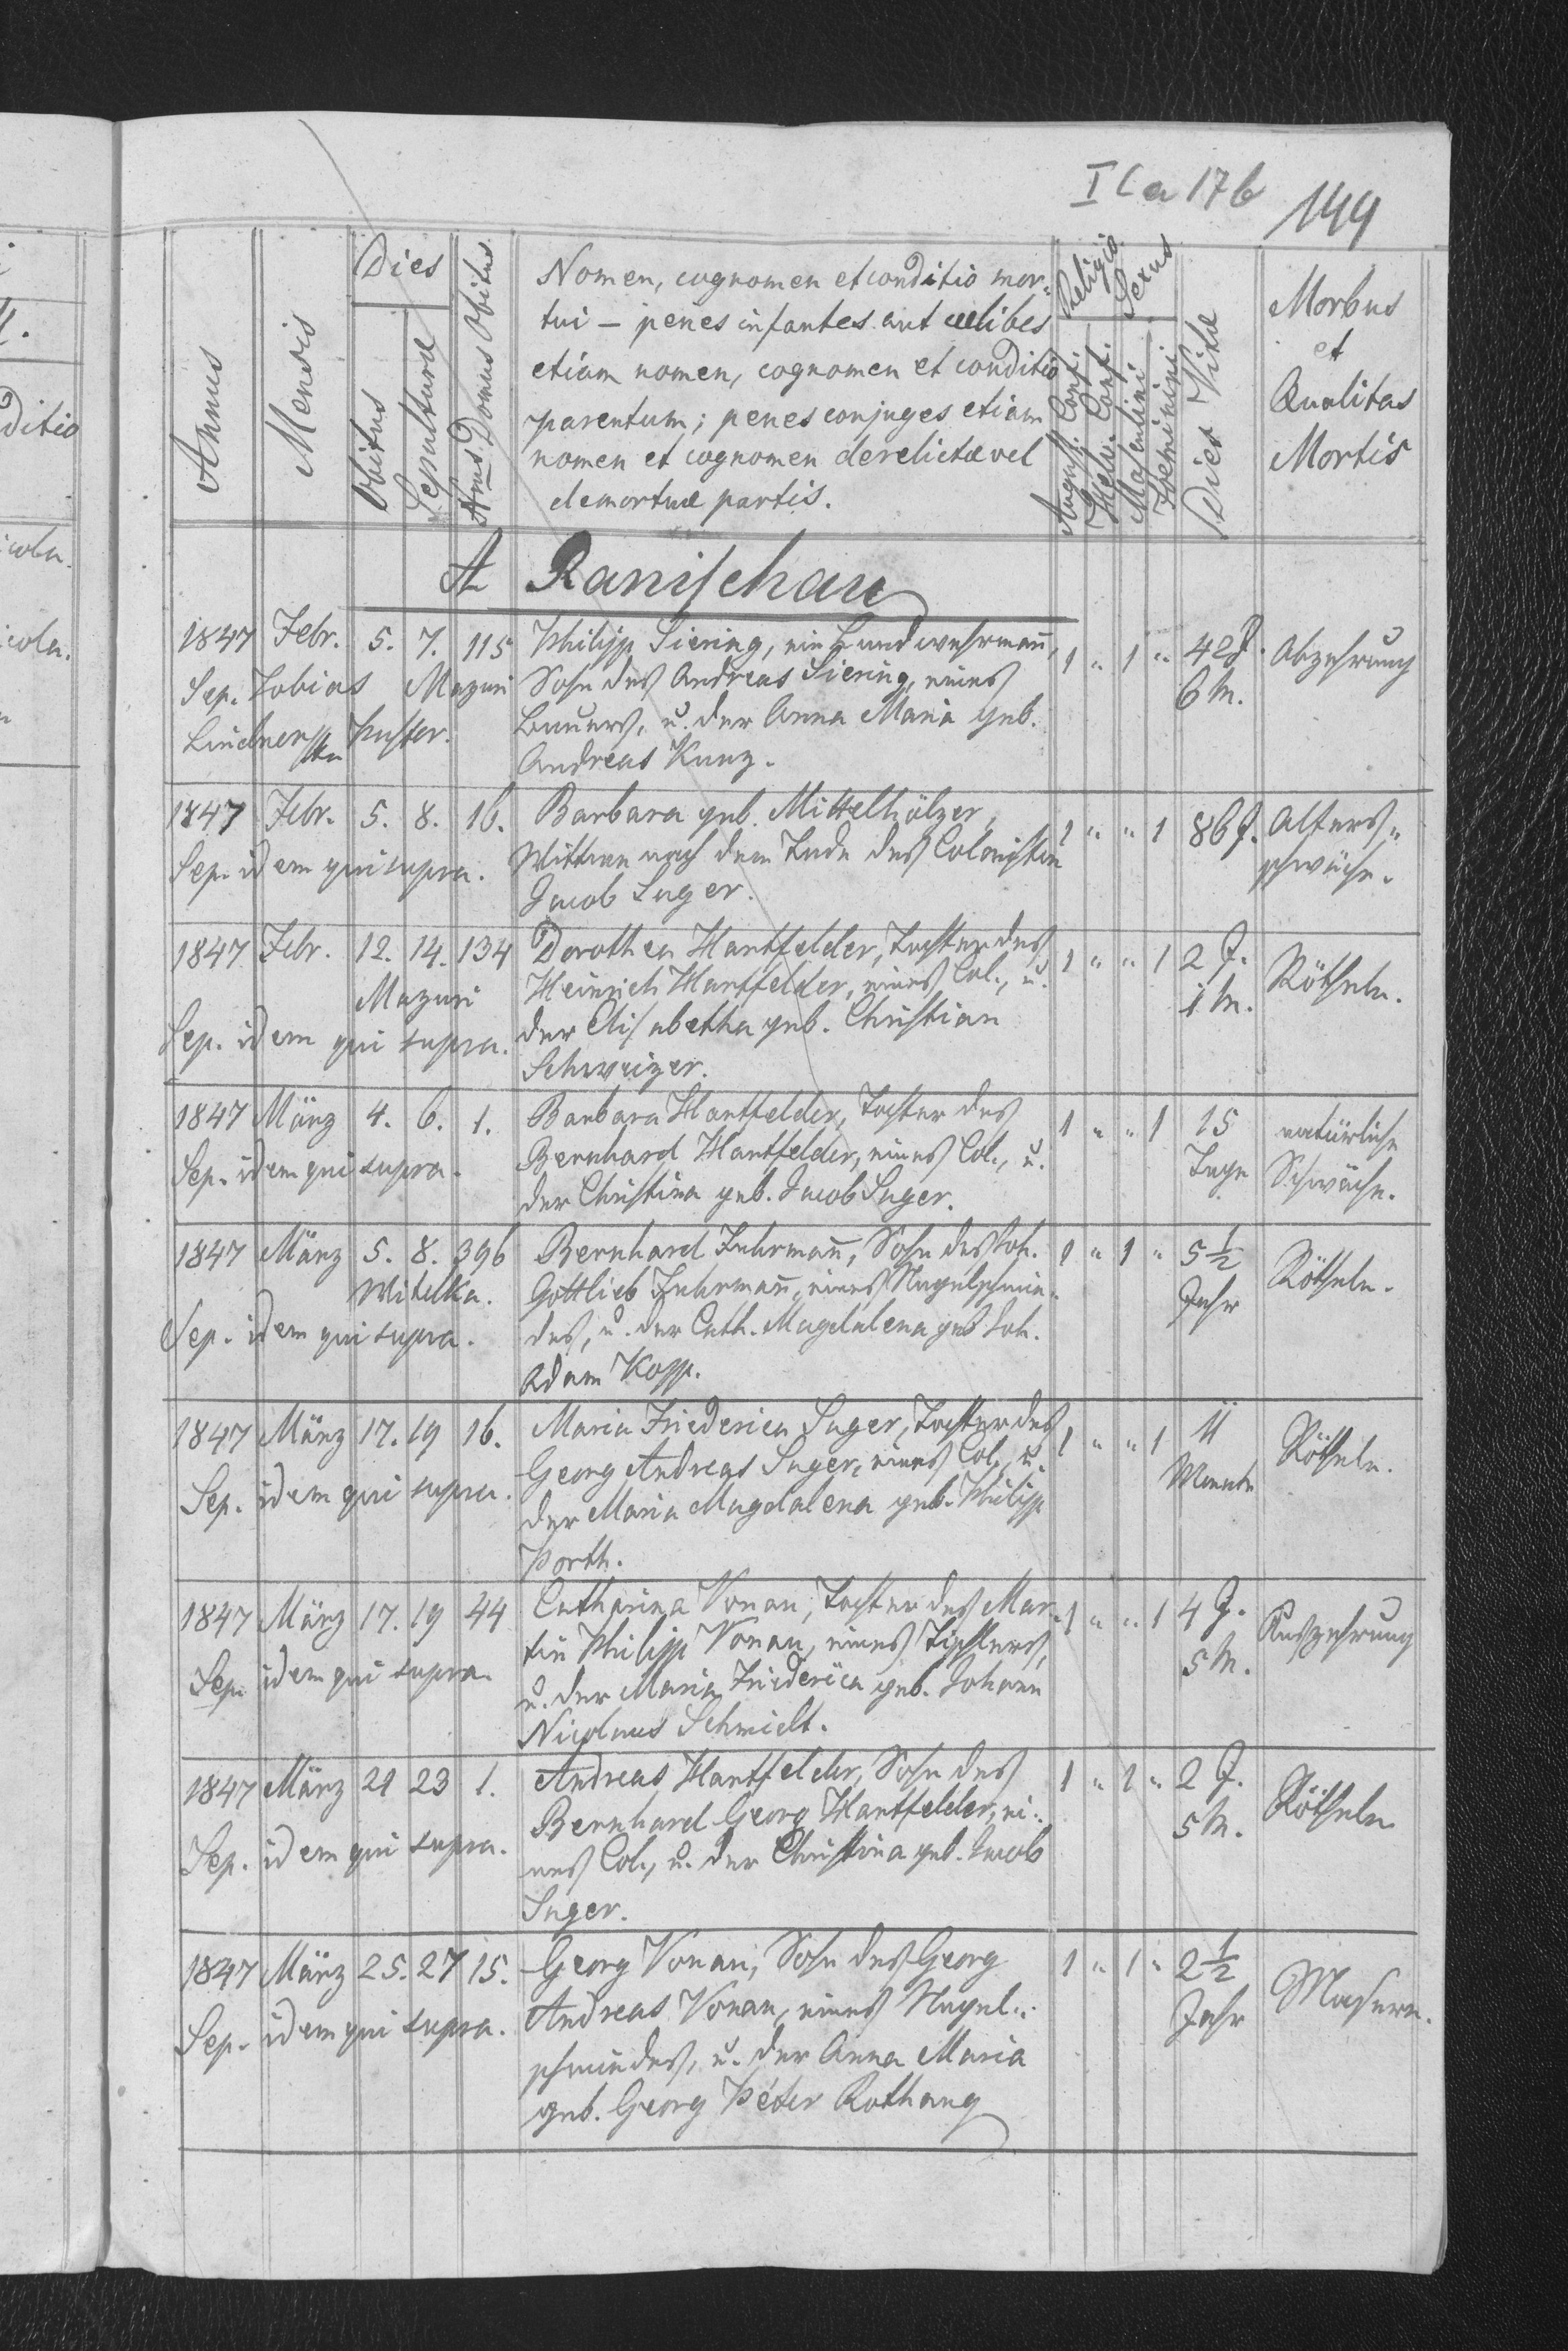 I C a 17 b
144
Annus
Mensis
Dies
Obitus
Sepulturæ
Nrus Domus Obitus
Nomen, cognomen et conditio mor-
tui — penes infantes aut cælibes
etiam nomen, cognomen et conditio
parentum; penes conjuges etiam
nomen et cognomen derelictæ vel
demortuæ partis.
Religio
Sexus
August. Conf.
Helv. Conf.
Masculini
Foeminini
Dies Vitæ
Morbus
et
Qualitas
Mortis
A Ranischau
1847 Febr. 5. 7. 115 Philipp Siering, ein Landwehrmañ, 1 " 1 " 42 J. Abzehrung
Sep. Tobias Mazuri Sohn des Andreas Siering, eines 6 M.
Lindner Pastor. Bauers, u. der Anna Maria geb.
Andreas Kunz.
1847 Febr. 5. 8. 16. Barbara geb. Mittelhölzer, 1 " " 1 86 J. Alters-
Sep. idem qui supra. Wittwe nach dem Tode des Colonisten schwäche.
Jacob Sager.
1847 Febr. 12. 14. 134 Dorothea Hartfelder, Tochter des 1 " " 1 2 J. Rötheln.
Mazuri Heinrich Hartfelder, eines Col., u. 1 M.
Sep. idem qui supra. der Elisabetha geb. Christian
Schweizer.
1847 März 4. 6. 1. Barbara Hartfelder, Tochter des 1 " " 1 15 natürliche
Sep. idem qui supra. Bernhard Hartfelder, eines Col., u. Tage Schwäche.
der Christina geb. Jacob Sager.
1847 März 5. 8. 396 Bernhard Fuhrmañ, Sohn des Joh. 1 " 1 " 5 1/2 Rötheln.
Wildlka. Gottlieb Fuhrmañ, eines Nagelschmie- Jahr
Sep. idem qui supra. des, u. der Cath. Magdalena geb. Joh.
Adam Kopp.
1847 März 17. 19 16. Maria Friederica Sager, Tochter des 1 " " 1 11 Rötheln.
Sep. idem qui supra. Georg Andreas Sager, eines Col., u. Monate
der Maria Magdalena geb. Philipp
Porth.
1847 März 17. 19 44 Catharina Vonau, Tochter des Mar- 1 " " 1 4 J. Auszehrung
Sep. idem qui supra. tin Philipp Vonau, eines Tischlers, 5 M.
u. der Maria Friederica geb. Johann
Nicolaus Schmidt.
1847 März 21 23 1. Andreas Hartfelder, Sohn des 1 " 1 " 2 J. Rötheln
Sep. idem qui supra. Bernhard Georg Hartfelder, ei- 5 M.
nes Col., u. der Christina geb. Jacob
Sager.
1847 März 25. 27 15. Georg Vonau, Sohn des Georg 1 " 1 " 2 1/2 Masern.
Sep. idem qui supra. Andreas Vonau, eines Nagel- Jahr
schmiedes, u. der Anna Maria
geb. Georg Peter Rothaug